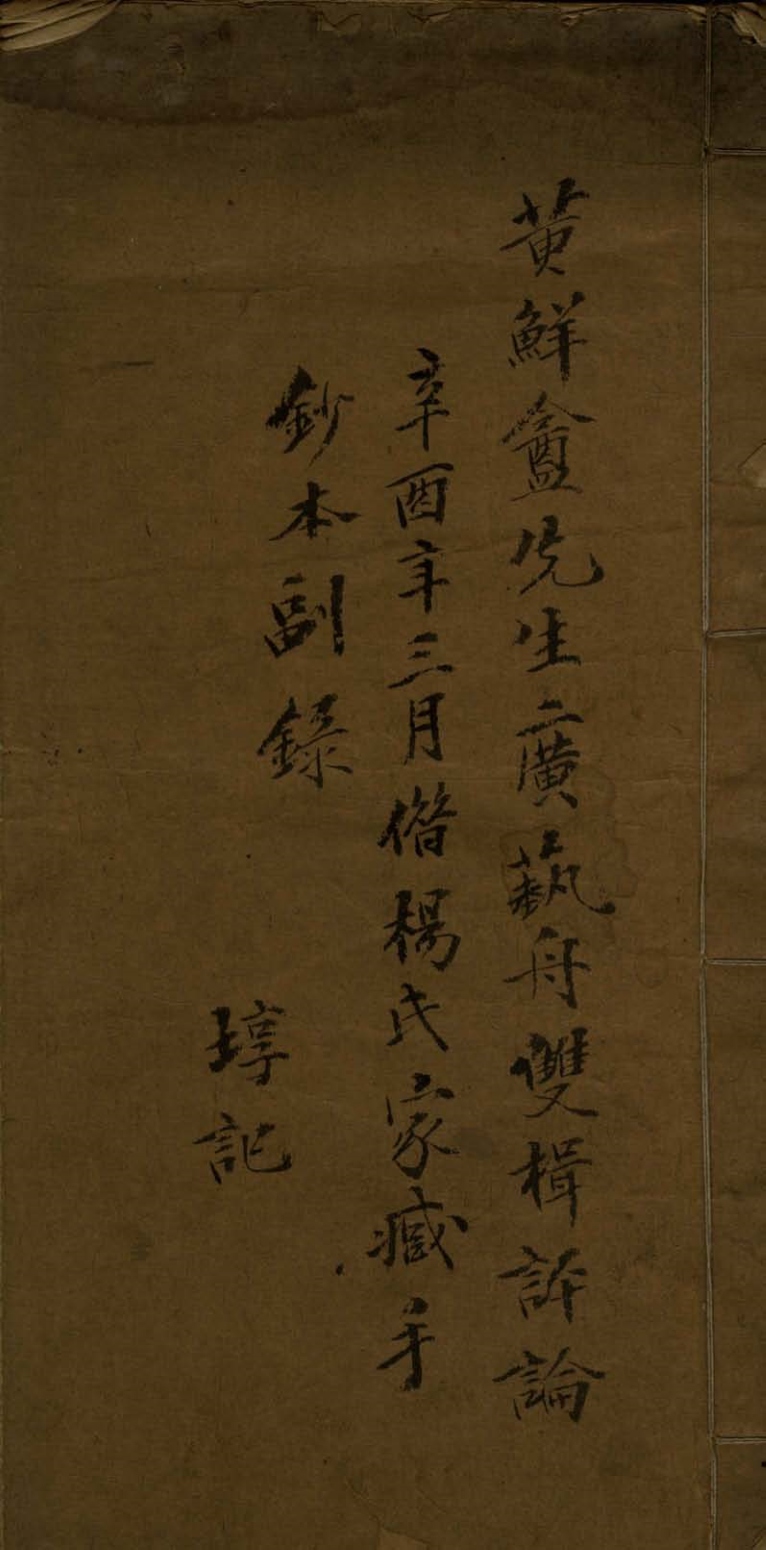 黃鮮盦先生廣藝舟雙楫評論
辛酉年三月借楊氏家臧手
鈔本副錄
㙛記